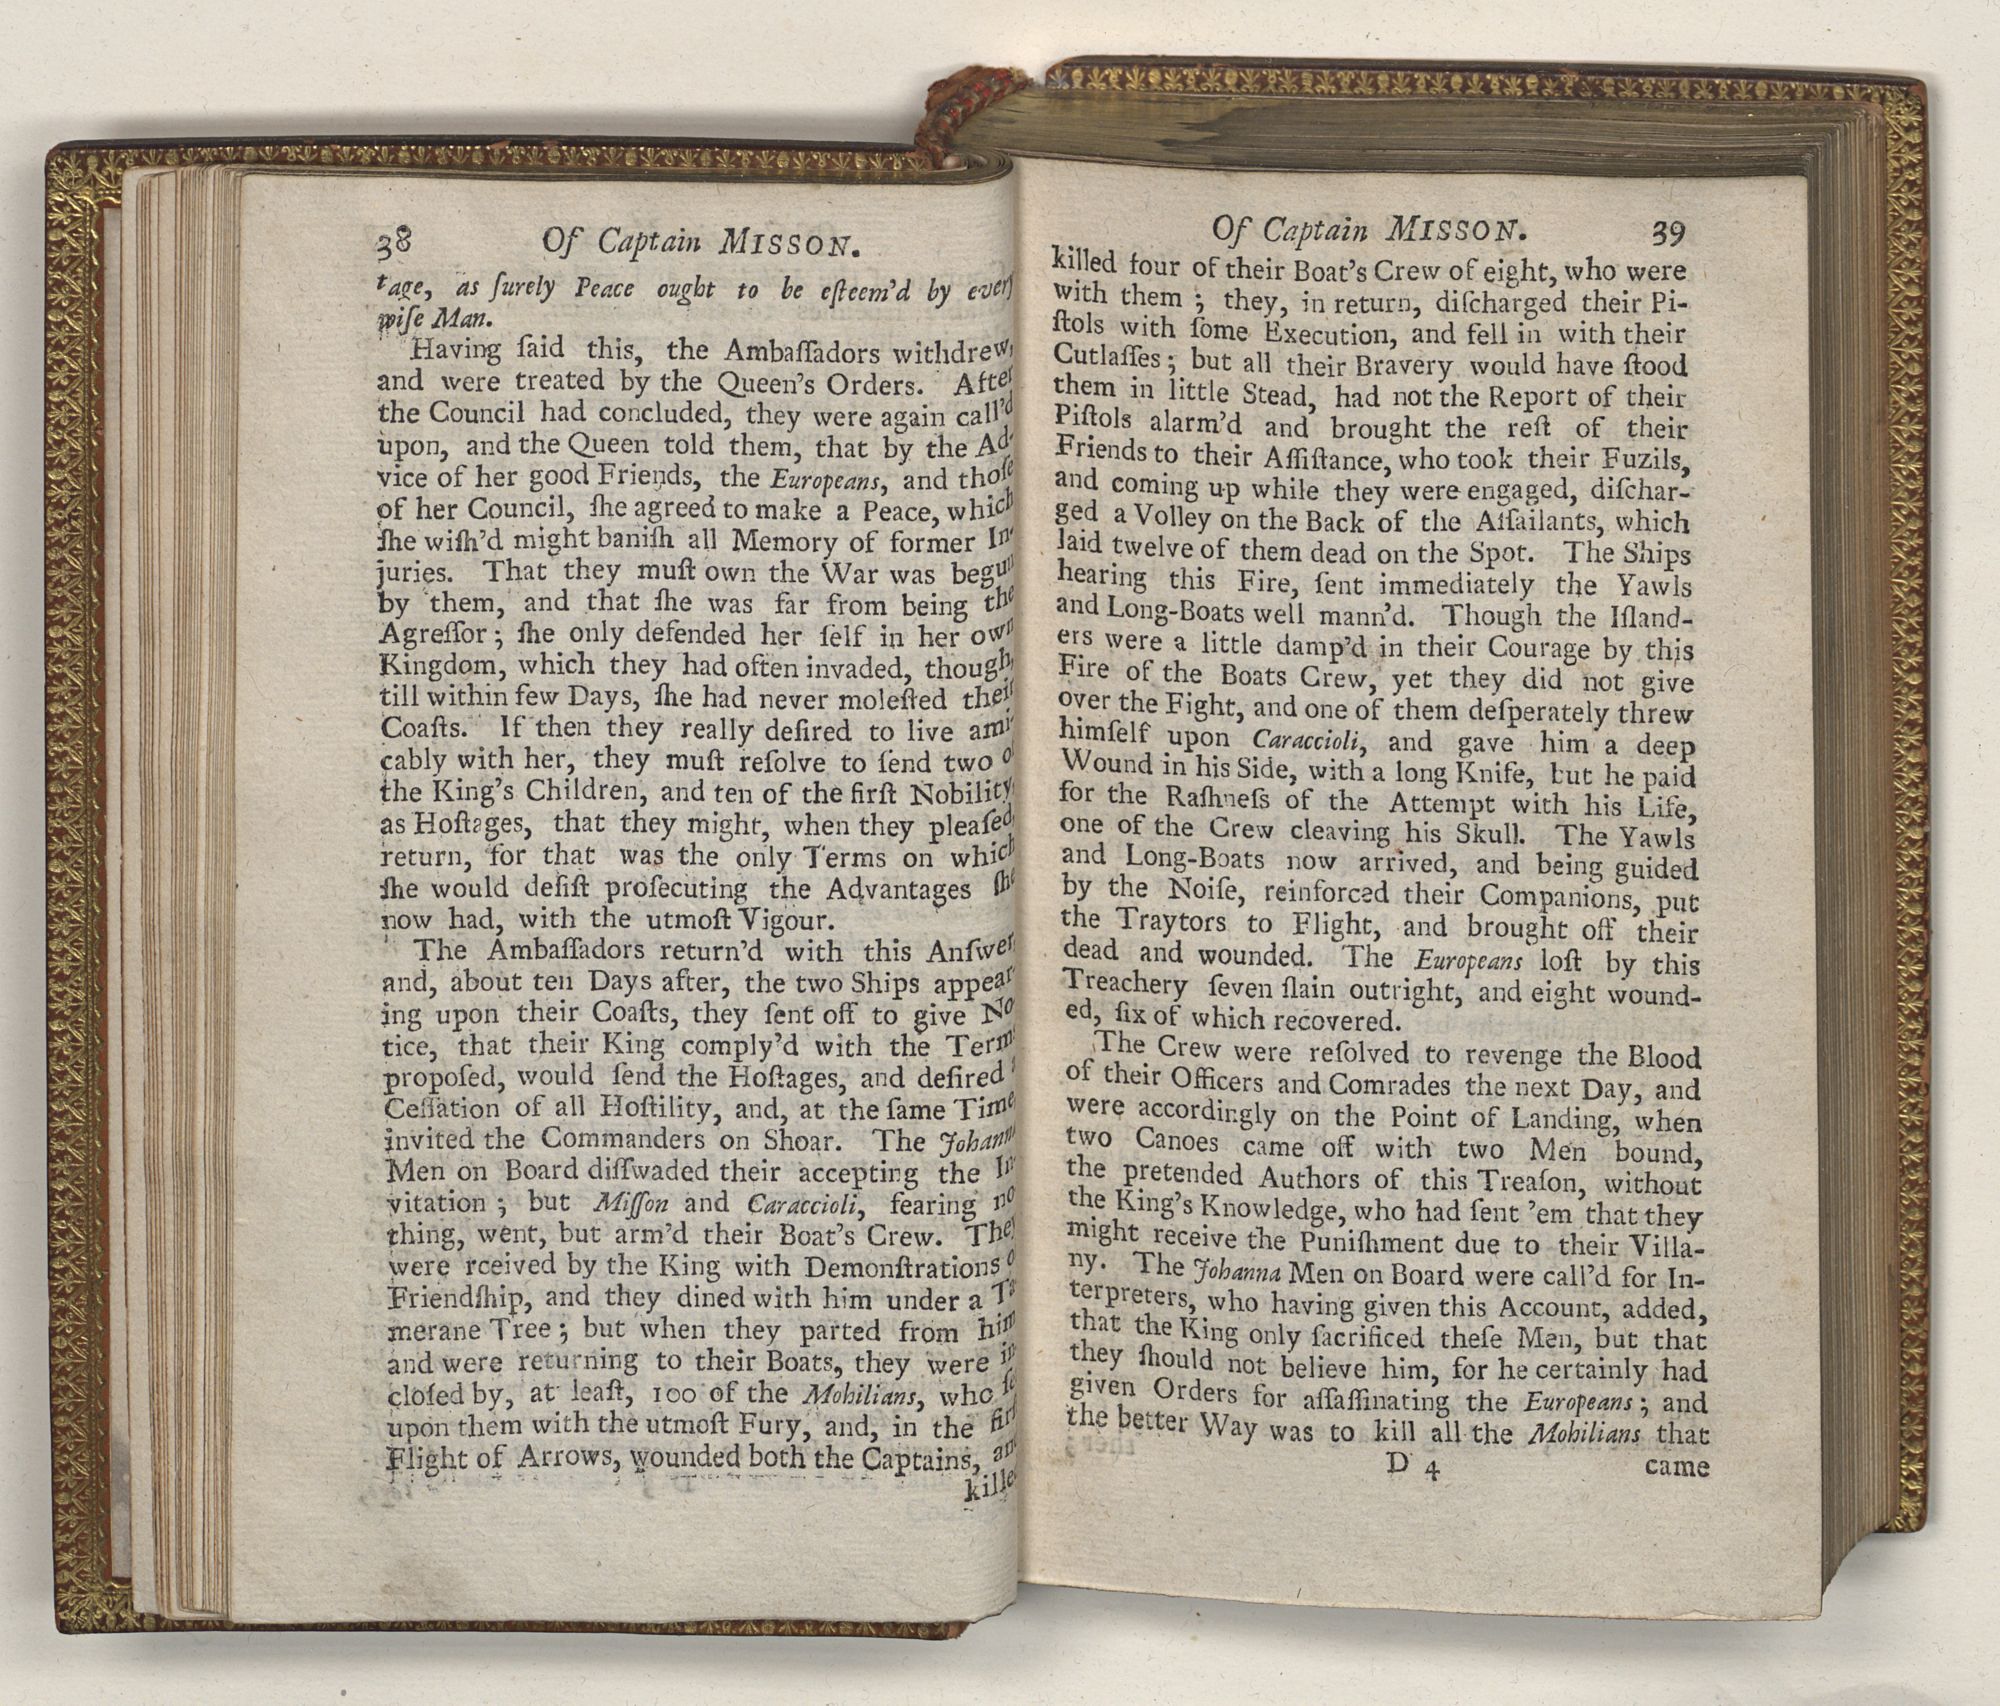 38 Of Captain MISSON.
tage, as ſurely Peace ought to be eſteem'd by every
wiſe Man.
Having ſaid this, the Ambaſſadors withdrew,
and were treated by the Queen's Orders. After
the Council had concluded, they were again call'd
upon, and the Queen told them, that by the Ad-
vice of her good Friends, the Europeans, and thoſe
of her Council, ſhe agreed to make a Peace, which
ſhe wiſh'd might baniſh all Memory of former In-
juries. That they muſt own the War was begun
by them, and that ſhe was far from being the
Agreſſor; ſhe only defended her ſelf in her own
Kingdom, which they had often invaded, though,
till within few Days, ſhe had never moleſted their
Coaſts. If then they really deſired to live ami-
cably with her, they muſt reſolve to ſend two of
the King's Children, and ten of the firſt Nobility,
as Hoſtages, that they might, when they pleaſed,
return, for that was the only Terms on which
ſhe would deſiſt proſecuting the Advantages ſhe
now had, with the utmoſt Vigour.
The Ambaſſadors return'd with this Anſwer,
and, about ten Days after, the two Ships appear-
ing upon their Coaſts, they ſent off to give No
tice, that their King comply'd with the Term
propoſed, would ſend the Hoſtages, and deſired
Ceſſation of all Hoſtility, and, at the ſame Time,
invited the Commanders on Shoar. The Johanna
Men on Board diſſwaded their accepting the In-
vitation; but Miſſon and Caraccioli, fearing no
thing, went, but arm'd their Boat's Crew. They
were rceived by the King with Demonſtrations o
Friendſhip, and they dined with him under a Ta
merane Tree; but when they parted from him
and were returning to their Boats, they were in
cloſed by, at leaſt, 100 of the Mohilians, who ſe
upon them with the utmoſt Fury, and, in the firſt
Flight of Arrows, wounded both the Captains, an
kille
Of Captain MISSON. 39
killed four of their Boat's Crew of eight, who were
with them; they, in return, diſcharged their Pi-
ſtols with ſome Execution, and fell in with their
Cutlaſſes; but all their Bravery would have ſtood
them in little Stead, had not the Report of their
Piſtols alarm'd and brought the reſt of their
Friends to their Aſſiſtance, who took their Fuzils,
and coming up while they were engaged, diſchar-
ged a Volley on the Back of the Aſſailants, which
laid twelve of them dead on the Spot. The Ships
hearing this Fire, ſent immediately the Yawls
and Long-Boats well mann'd. Though the Iſland-
ers were a little damp'd in their Courage by this
Fire of the Boats Crew, yet they did not give
over the Fight, and one of them deſperately threw
himſelf upon Caraccioli, and gave him a deep
Wound in his Side, with a long Knife, but he paid
for the Raſhneſs of the Attempt with his Life,
one of the Crew cleaving his Skull. The Yawls
and Long-Boats now arrived, and being guided
by the Noiſe, reinforced their Companions, put
the Traytors to Flight, and brought off their
dead and wounded. The Europeans loſt by this
Treachery ſeven ſlain outright, and eight wound-
ed, ſix of which recovered.
The Crew were reſolved to revenge the Blood
of their Officers and Comrades the next Day, and
were accordingly on the Point of Landing, when
two Canoes came off with two Men bound,
the pretended Authors of this Treaſon, without
the King's Knowledge, who had ſent 'em that they
might receive the Puniſhment due to their Villa-
ny. The Johanna Men on Board were call'd for In-
terpreters, who having given this Account, added,
that the King only ſacrificed theſe Men, but that
they ſhould not believe him, for he certainly had
given Orders for aſſaſſinating the Europeans; and
the better Way was to kill all the Mohilians that
D 4 came